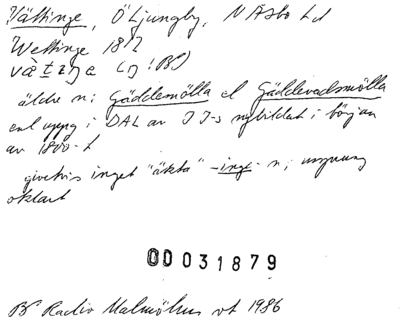 Vättinge, Ö Ljungby, N Åsbo hd
Wettinge 1812
äldre n: Gäddemölla el Gäddevadsmölla
enl uppg i DAL av JJ-s nybildat i början
av 1800-t
givetvis inget "äkta" -inge- n; ursprung
oklart
00031879
BP Radio Malmöhus vt 1986